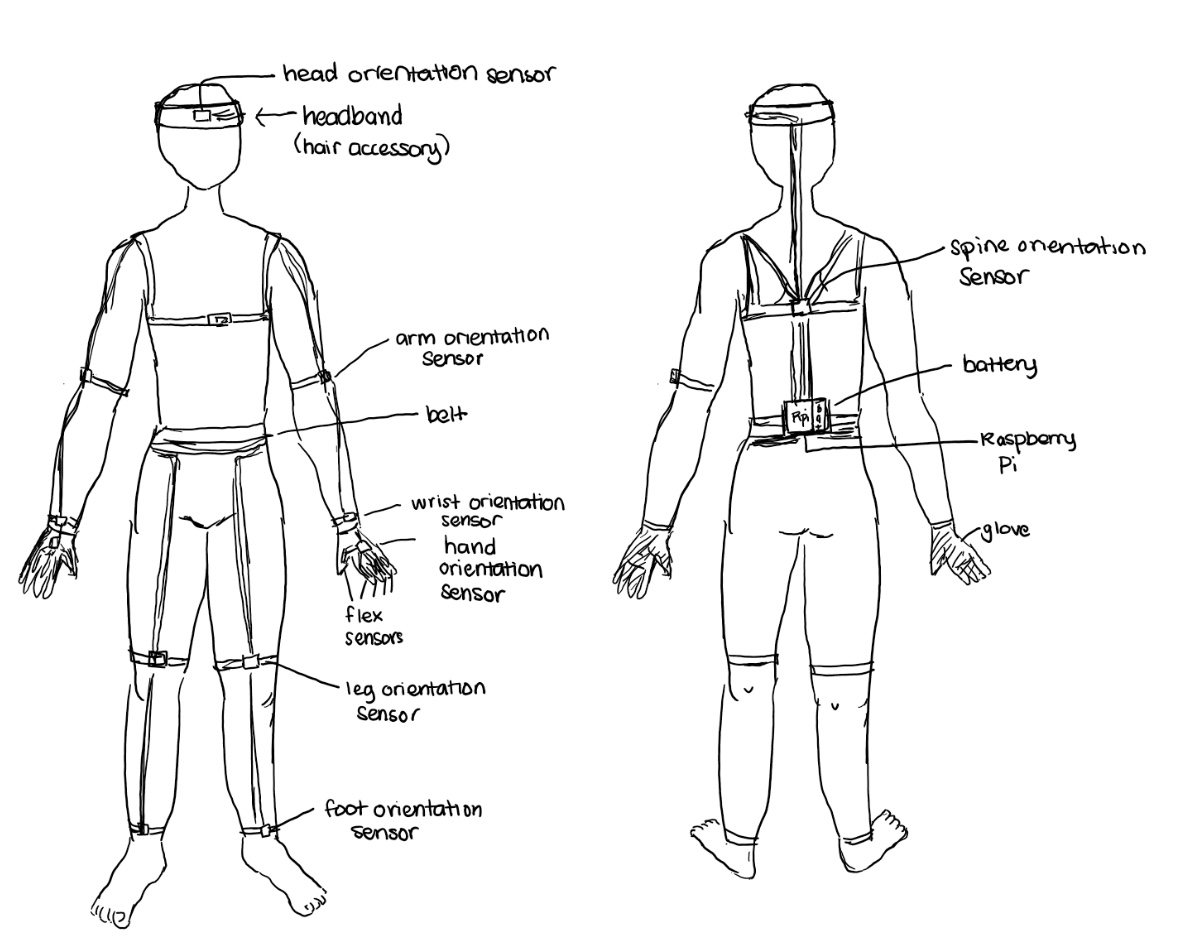 head orientation sensor
headband
(hair accessory)
arm orientation
sensor
belt
wrist orientation
sensor
hand
orientation
sensor
flex
sensors
leg orientation
sensor
foot orientation
sensor
spine orientation
sensor
battery
Rpi
Raspberry
Pi
glove